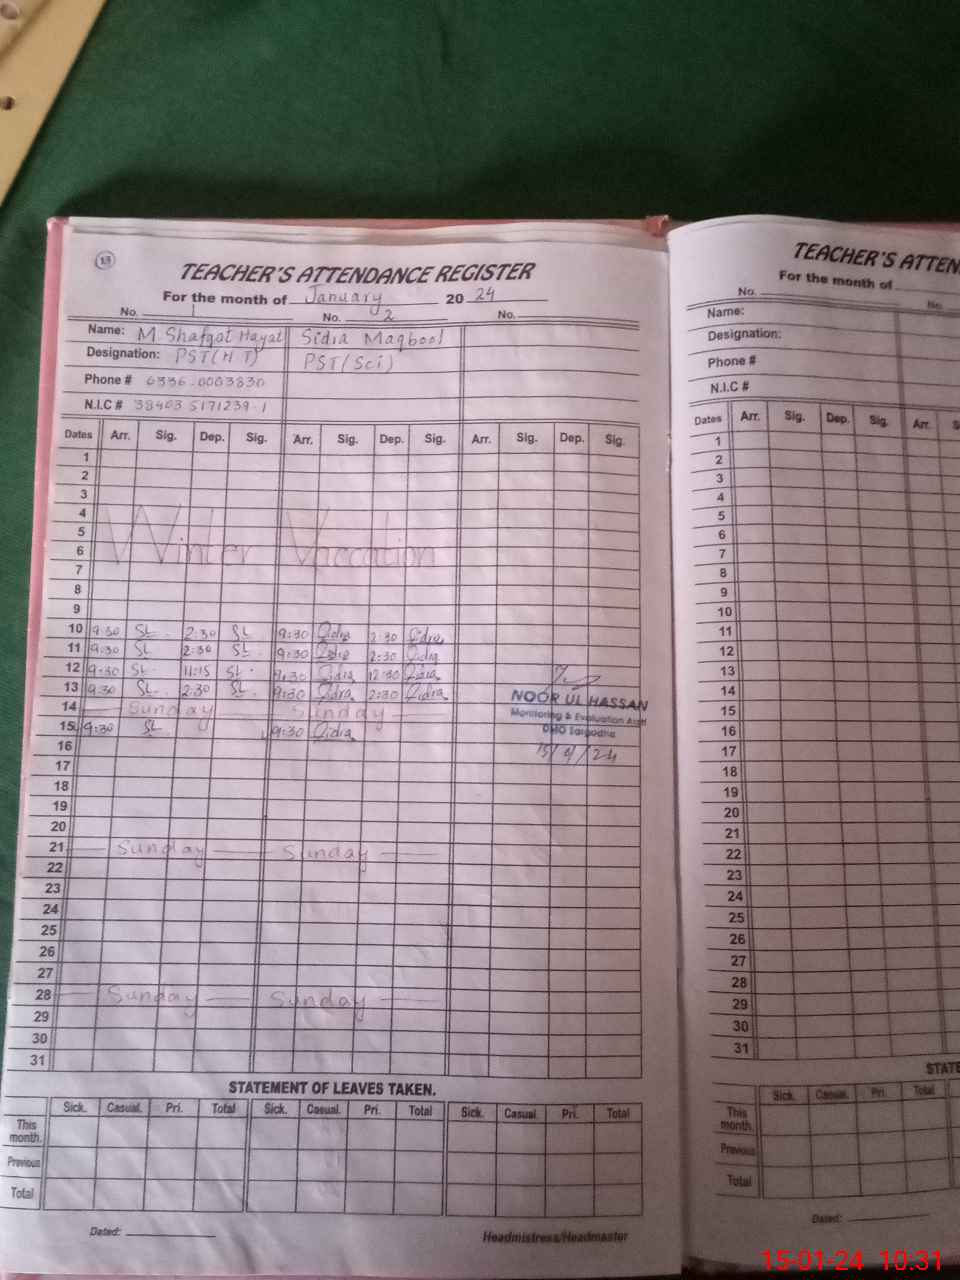 13
TEACHER'S ATTENDANCE REGISTER
For the month of January 20 24
No. 1 No. 2 No.
Name: M. Shafqat Hayat Sidia Maqbool
Designation: PST(HT) PST/Sci)
Phone # 0336-0003830
N.I.C # 38403 5171239-1
Dates Arr. Sig. Dep. Sig. Arr. Sig. Dep. Sig. Arr. Sig. Dep. Sig.
1
2
3
4
5
Winter Vaccation
6
7
8
9
10 9:30 2:30 9:30 Sidia 2:30 Sidia
11 9:30 2:30 9:30 Sidia 2:30 Sidia
12 9:30 11:15 9:30 Sidia 12:30 Sidia
13 9:30 2:30 9:30 Sidia 2:30 Sidia
14 Sunday Sunday
15 9:30 9:30 Sidia
NOOR UL HASSAN
Monitoring & Evaluation Asstt
DMO Sargodha
16
17
18
19
20
21 Sunday Sunday
22
23
24
25
26
27
28 Sunday Sunday
29
30
31
STATEMENT OF LEAVES TAKEN.
Sick. Casual. Pri. Total Sick. Casual. Pri. Total Sick. Casual. Pri. Total
This month.
Previous
Total
Dated:
Headmistress/Headmaster
TEACHER'S ATTEN
For the month of
No. No.
Name:
Designation:
Phone #
N.I.C #
Dates Arr. Sig. Dep. Sig. Arr. S
1
2
3
4
5
6
7
8
9
10
11
12
13
14
15
16
17
18
19
20
21
22
23
24
25
26
27
28
29
30
31
STATE
Sick. Casual. Pri. Total
This month.
Previous
Total
Dated:
15-01-24 10:31